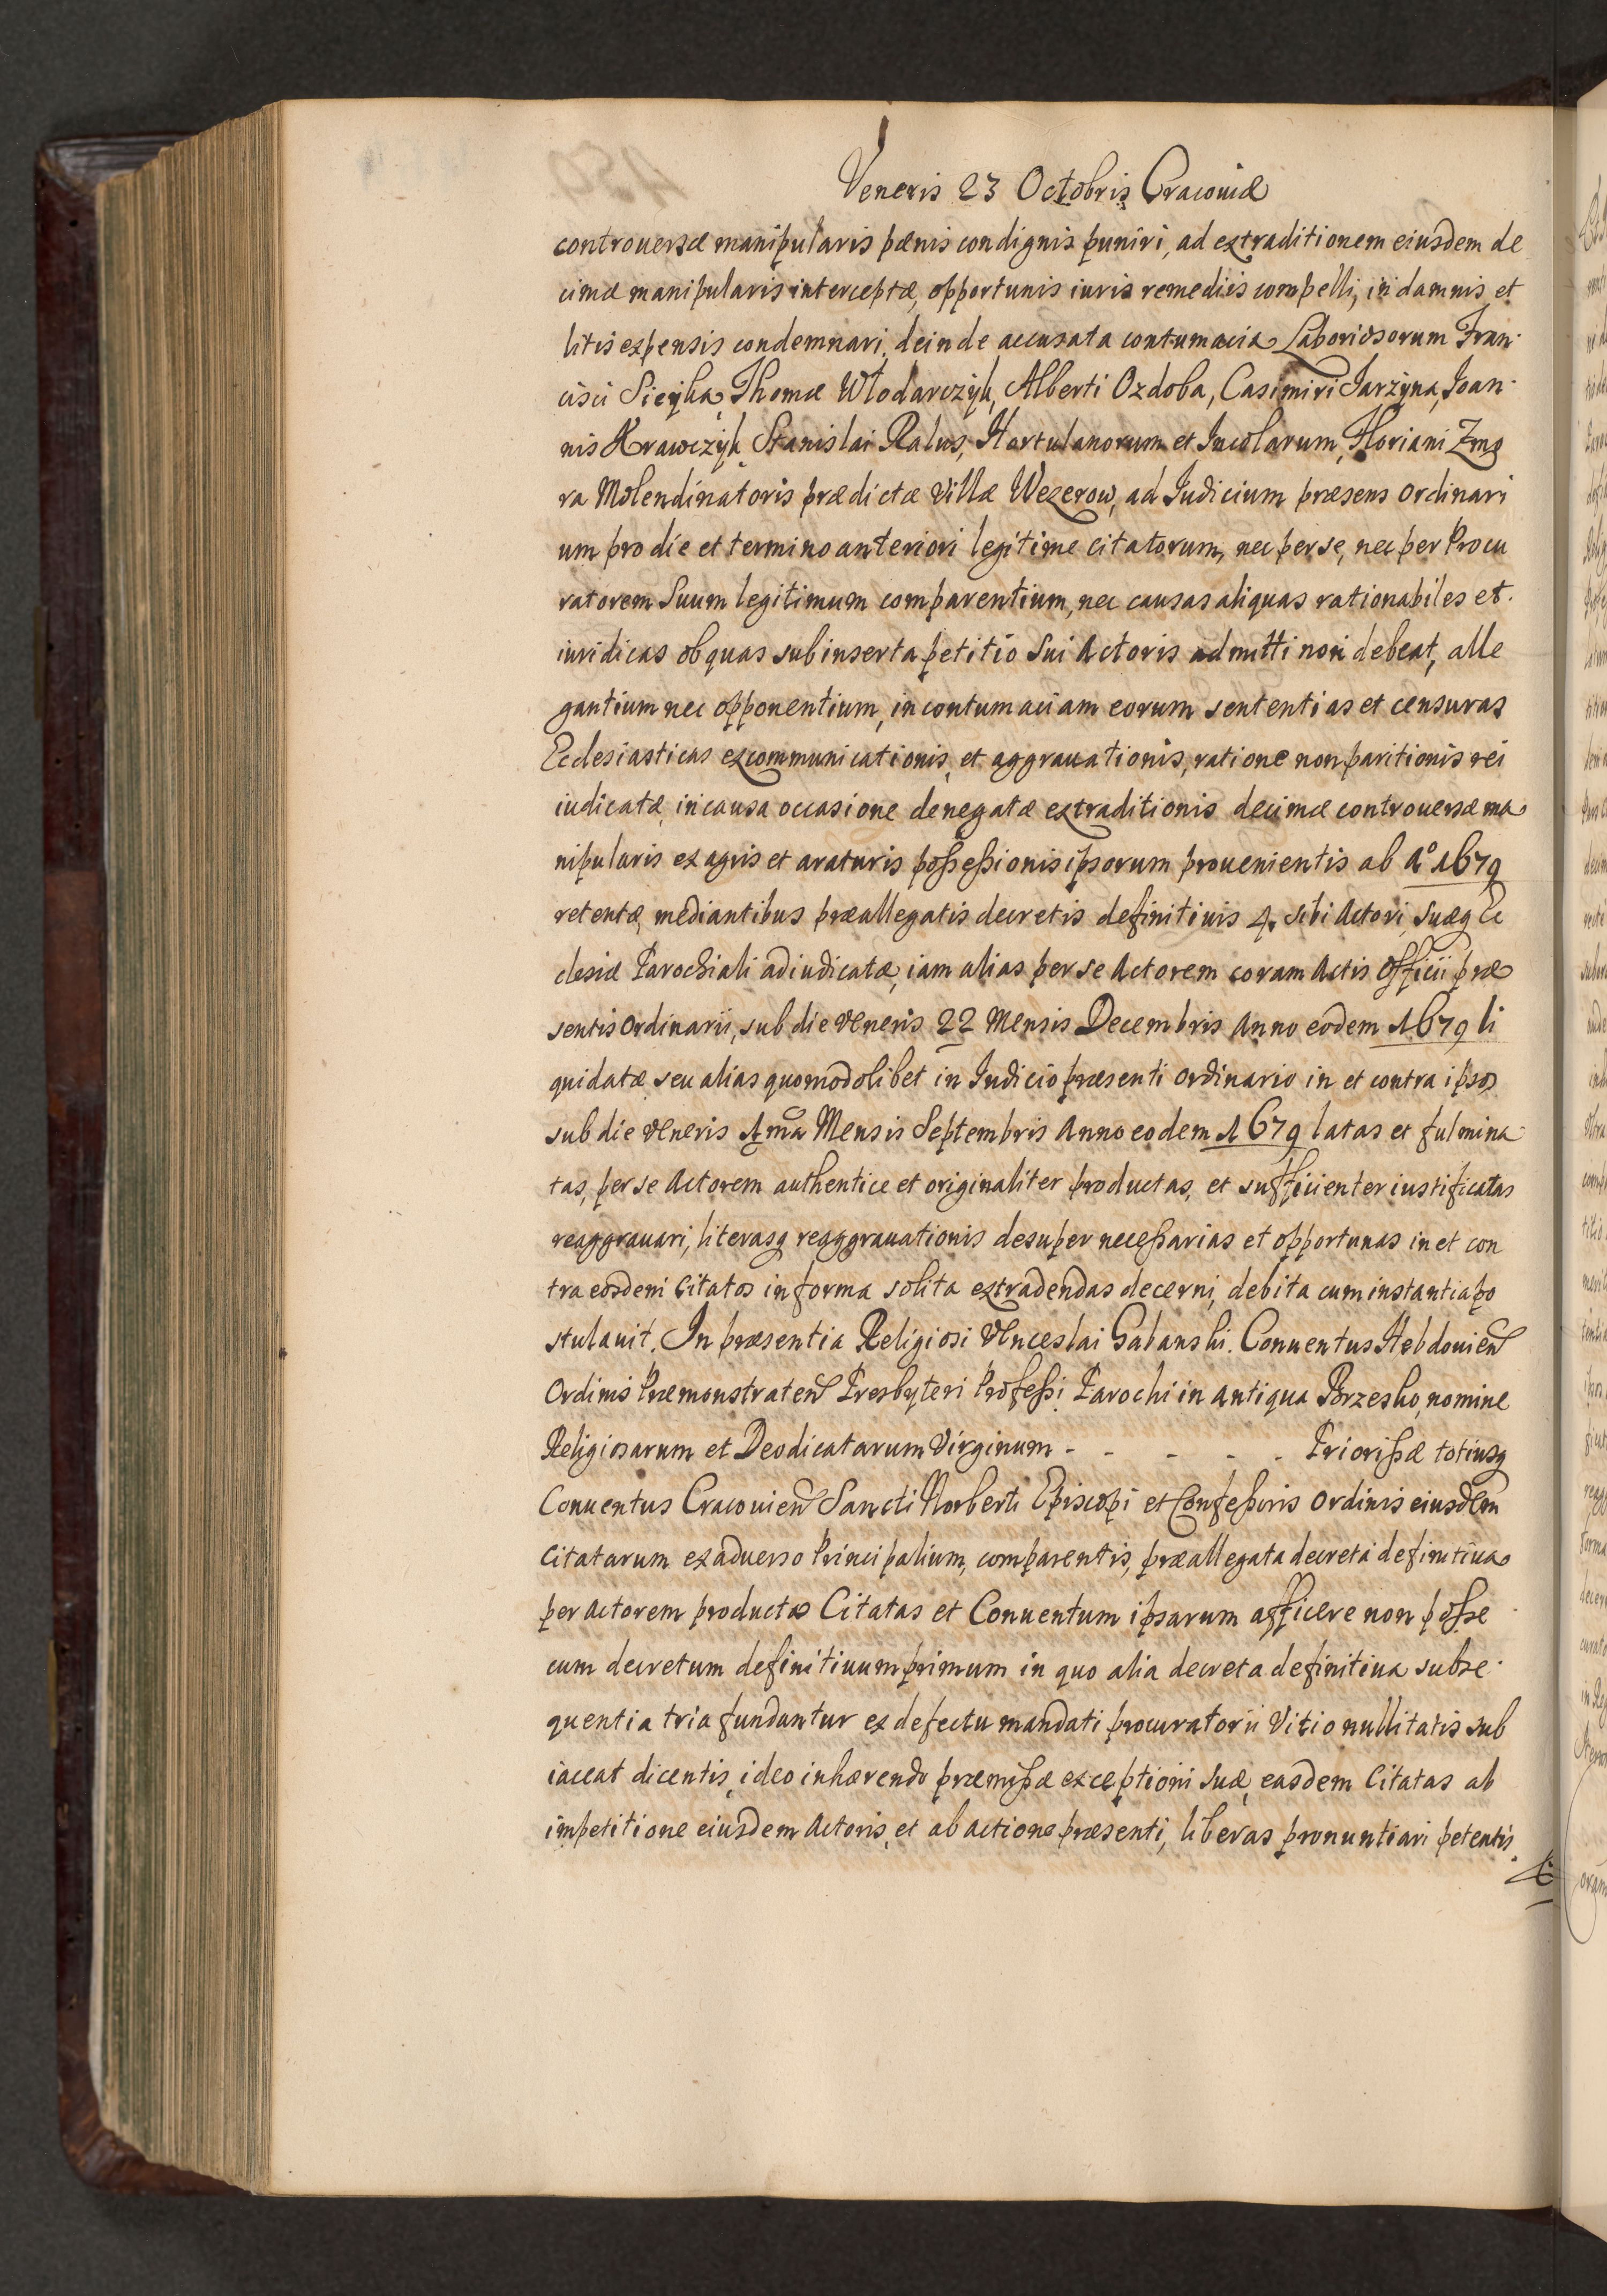 Veneris 23 Octobris Cracouiæ
controuersæ manipularis pænis condignis puniri, ad extraditionem eiusdem de
cimæ manipularis interceptæ, opportunis iuris remediis compelli, in damnis et
litis expensis condemnari, deinde accusata contumacia Laboriosorum Fran-
cisci Sieyka, Thomæ Wlodarczyk, Alberti Ozdoba, Casimiri Jarzyna, Joan-
nis Krawczyk, Stanislai Ralus, Hortulanorum et Incolarum, Floriani Zmg
ra Molendinatoris prædictæ Villæ Wezerow, ad Iudicium præsens ordinari
um pro die et termino anteriori legitime citatorum, nec per se, nec per Procu
ratorem Suum legitimum comparentium, nec causas aliquas rationabiles et
iuridicas ob quas sub inserta petitio Sui Actoris admitti non debeat, alle
gantium nec opponentium, in contumaciam eorum sententias et censuras
Ecclesiasticas excommunicationis, et aggrauationis, ratione non paritionis rei
iudicatæ, in causa occasione denegatæ extraditionis decimæ controuersæ ma
nipularis ex agris et araturis possessionis ipsorum prouenientis ab Aº 1679
retentæ, mediantibus præallegatis decretis definitiuis 4. sibi Actori, Suæq Ec
clesiæ Parochiali adiudicatæ, iam alias per se Actorem coram Actis Officii præ
sentis Ordinarii, sub die Veneris 22 Mensis Decembris Anno eodem 1679 li
quidatæ seu alias quomodolibet in Iudicio præsenti ordinario in et contra ipsos
sub die Veneris 1ma Mensis Septembris Anno eodem 1679 latas et fulmina
tas, per se Actorem authentice et originaliter productas, et sufficienter iustificatas
reaggrauari, literasq reaggrauationis desuper necessarias et opportunas in et con
tra eosdem Citatos in forma solita extradendas decerni, debita cum instantia po
stulauit. In præsentia Religiosi Venceslai Gabanski. Conuentus Hebdouien
Ordinis Præmonstraten Presbyteri Professi Parochi in antiqua Brzesko, nomine
Religiosarum et Deodicatarum Virginum - - - - - Priorissæ totiusq
Conuentus Cracouien Sancti Norberti Episcopi et Confessoris Ordinis eiusdem
Citatarum ex aduerso Principalium, comparentis, præallegata decreta definitiua
per Actorem producta Citatas et Conuentum ipsarum afficere non posse
cum decretum definitiuum primum in quo alia decreta definitiua subse-
quentia tria fundantur ex defectu mandati procuratorii Vitio nullitatis sub
iaceat dicentis, ideo inhærendo præmissæ exceptioni Suæ, easdem Citatas ab
impetitione eiusdem Actoris, et ab actione præsenti, liberas pronuntiari petentis.